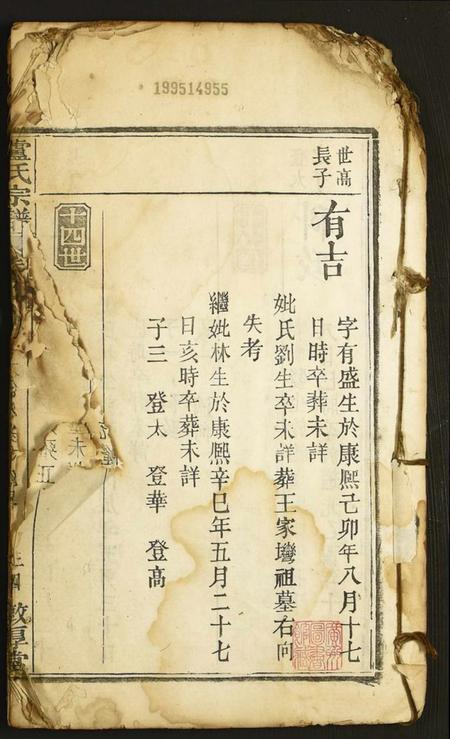 199514955
世高
長子
有吉
字有盛生於康熙己卯年八月十七
日時卒葬未詳
妣氏劉生卒未詳葬王家壪祖墓右向
失考
繼妣林生於康熙辛巳年五月二十七
日亥時卒葬未詳
子三 登太 登華 登高
十四世
盧氏宗譜
敦厚堂